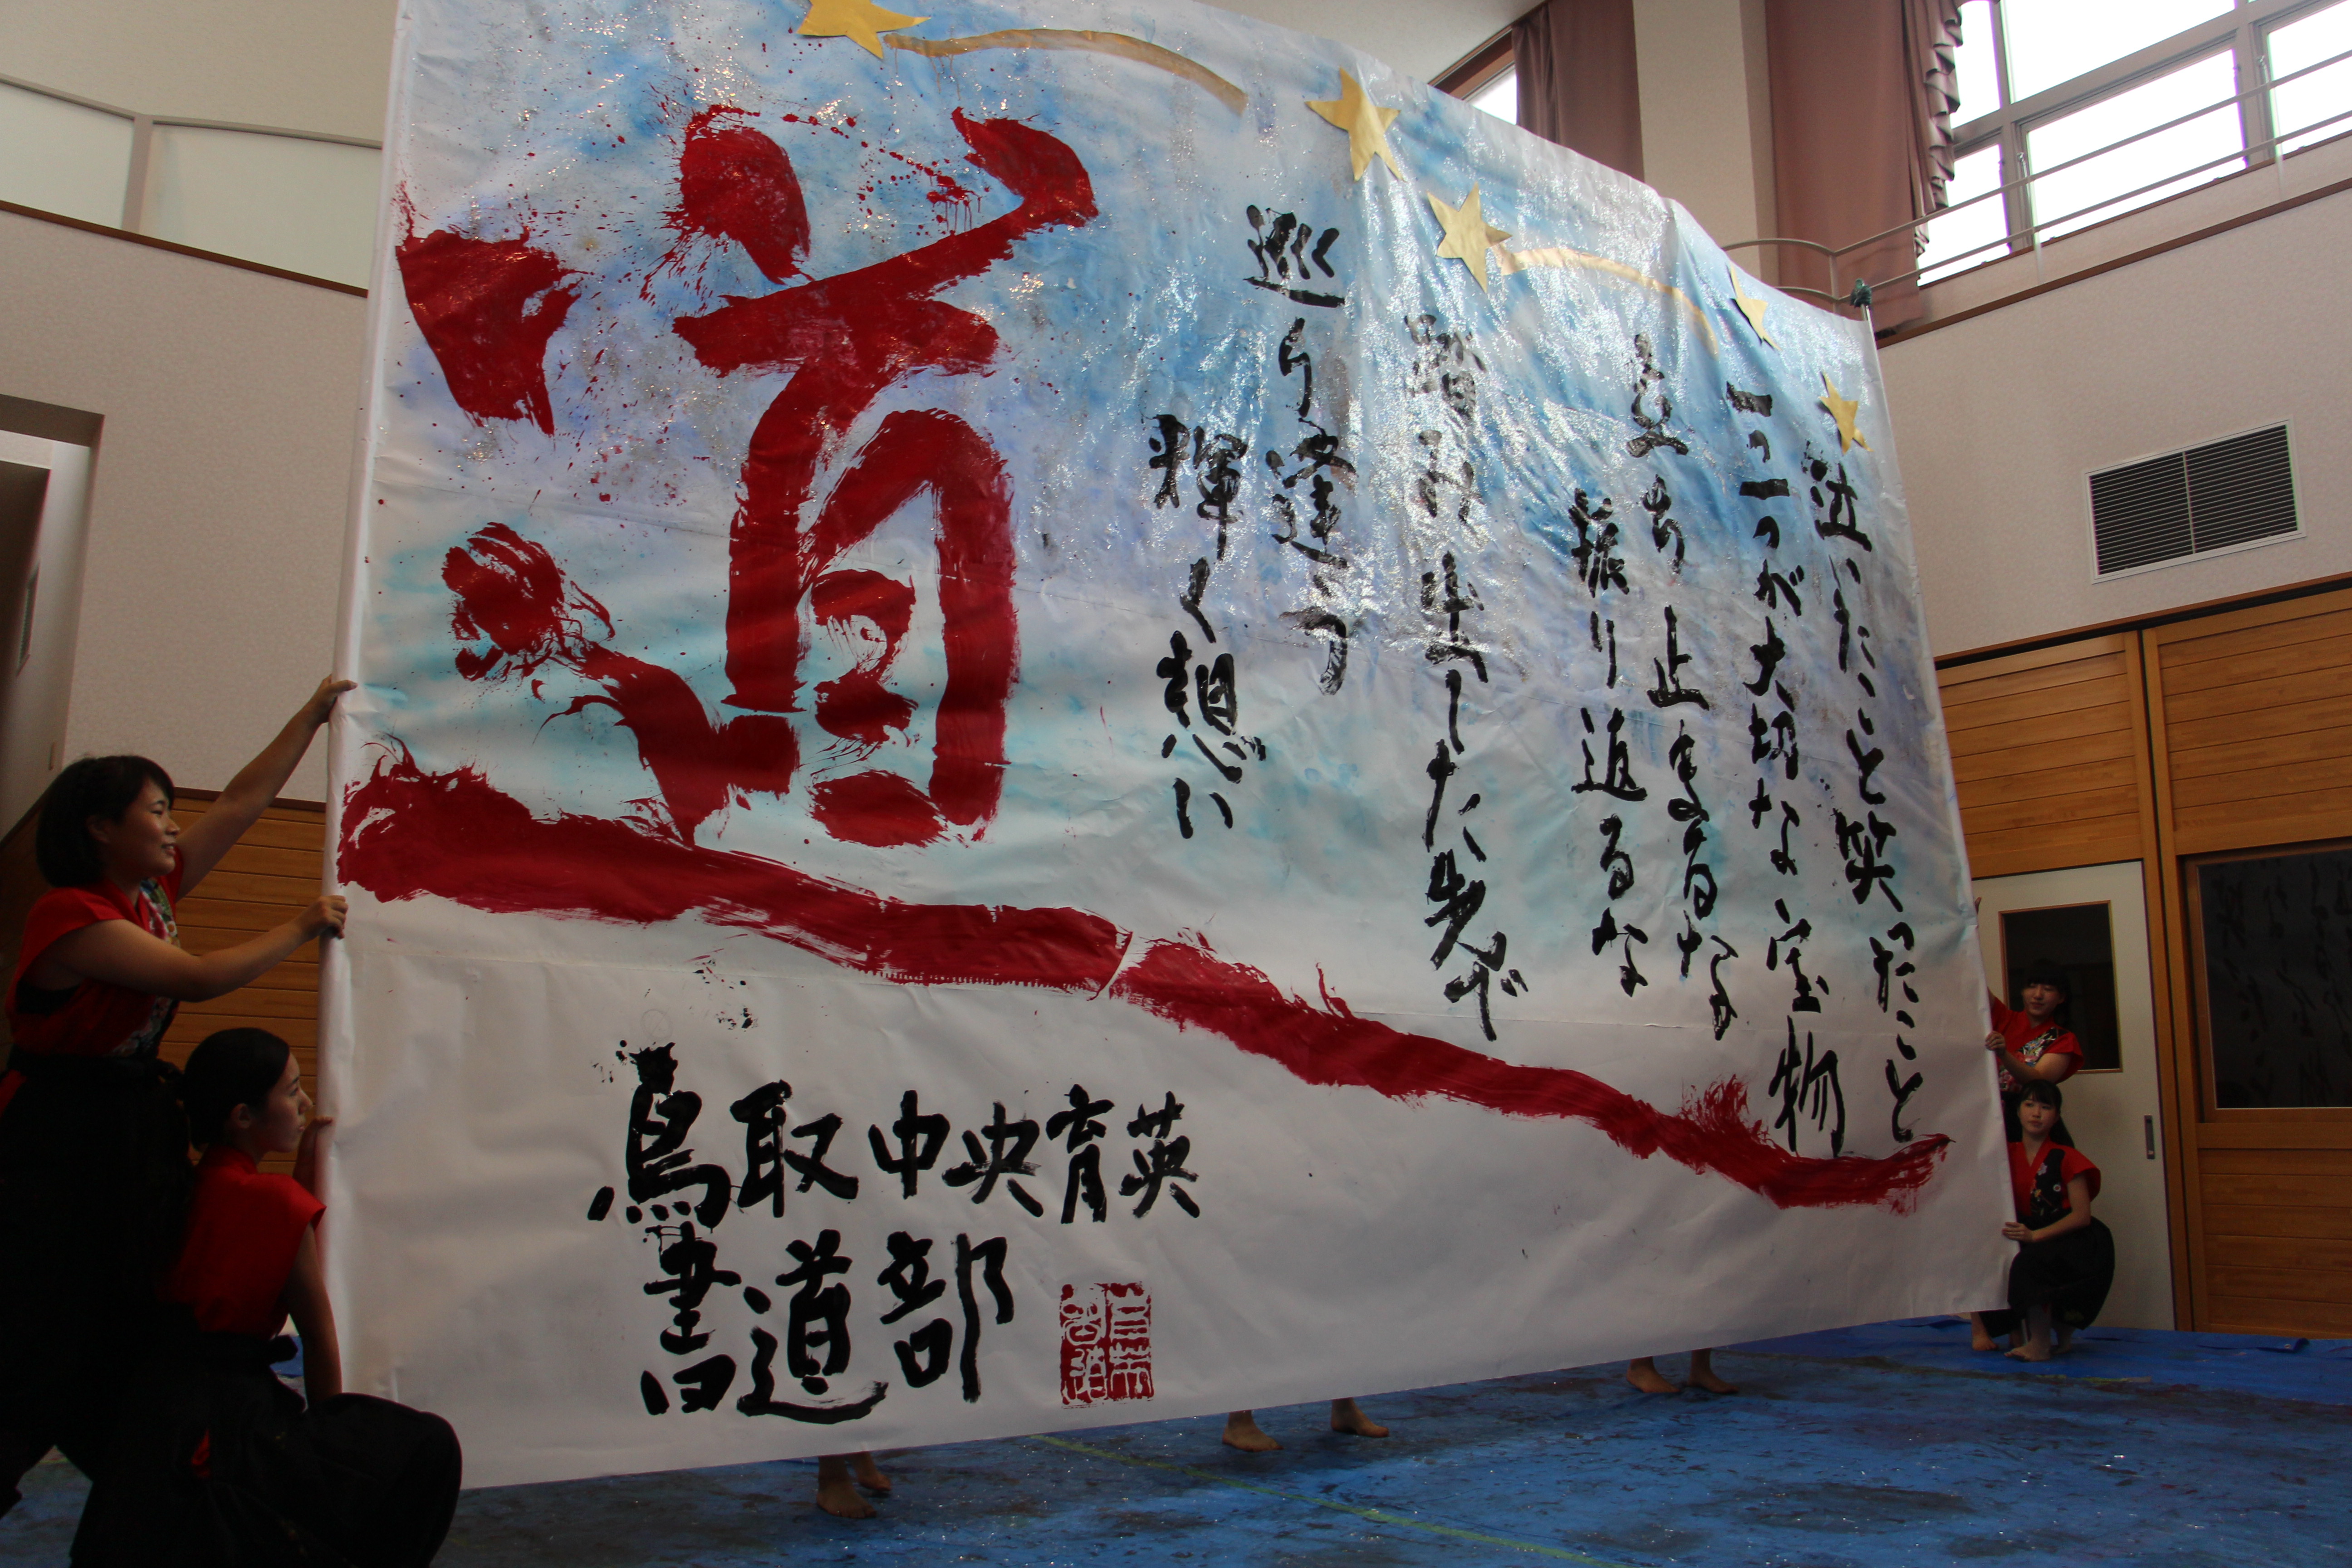 泣いたこと笑ったこと
一つ一つが大切な宝物
立ち止まるな
振り返るな
踏み出した先で
巡り逢う
輝く想い
道
鳥取中央育英
書道部